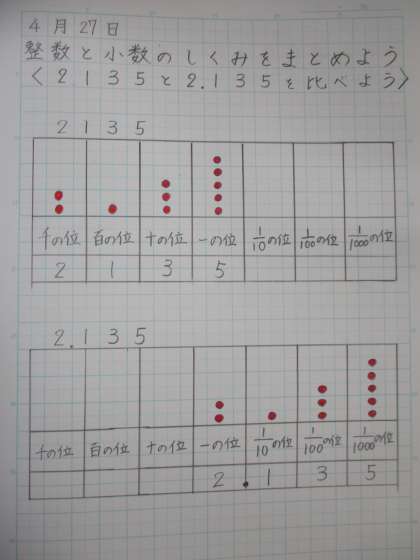 4月27日
整数と小数のしくみをまとめよう
〈2135と2.135を比べよう〉
2135
千の位 百の位 十の位 一の位 1/10の位 1/100の位 1/1000の位
2 1 3 5
2.135
千の位 百の位 十の位 一の位 1/10の位 1/100の位 1/1000の位
2 . 1 3 5